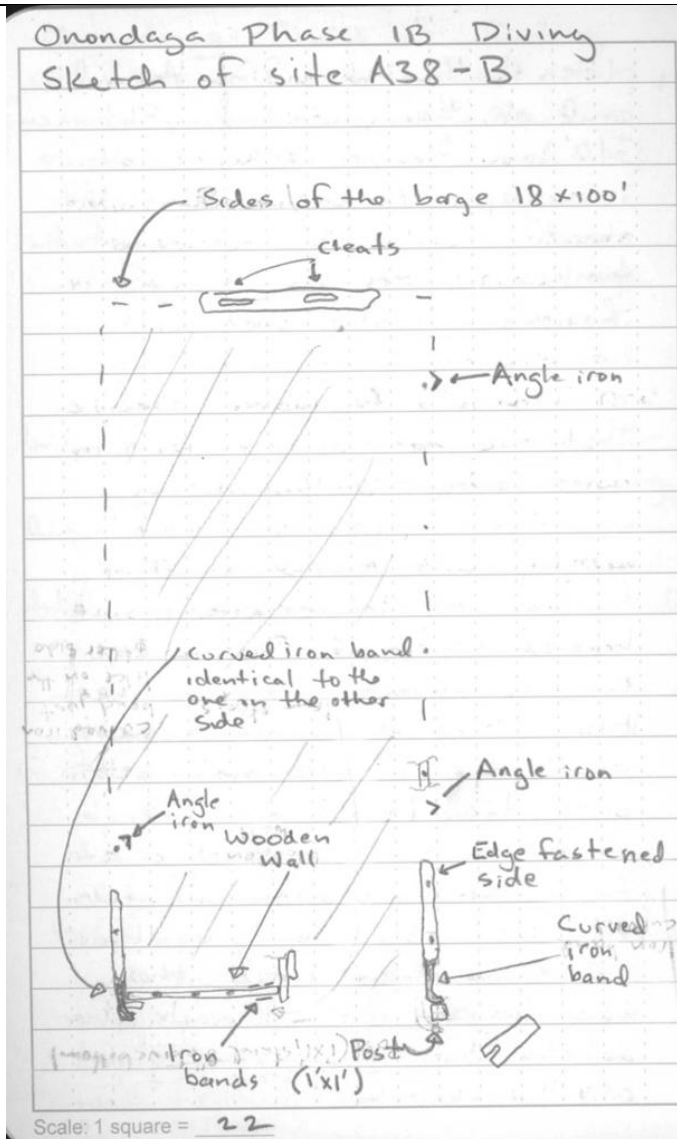 Onondaga Phase 1B Diving
Sketch of site A38-B
Sides of the barge 18 x100'
cleats
Angle iron
curved iron band
identical to the
one on the other
side
Angle iron
Angle
iron
Wooden
Wall
Edge fastened
side
Curved
iron
band
Iron
bands (1'x1')
Post
Scale: 1 square = 22